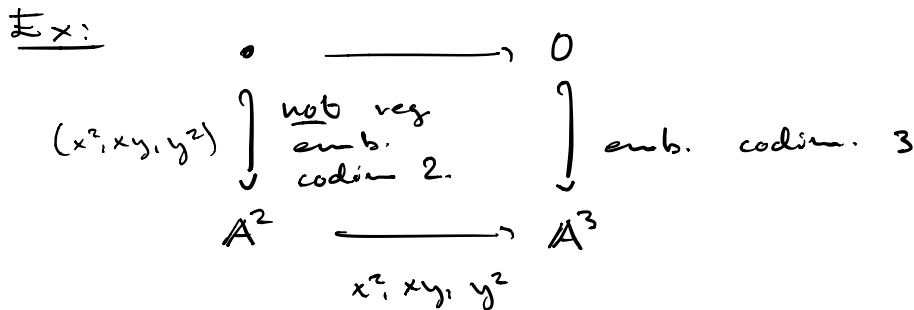 Ex:
• → 0
(x², xy, y²) not reg
emb. emb. codim. 3
codim 2.
𝔸² → 𝔸³
x², xy, y²